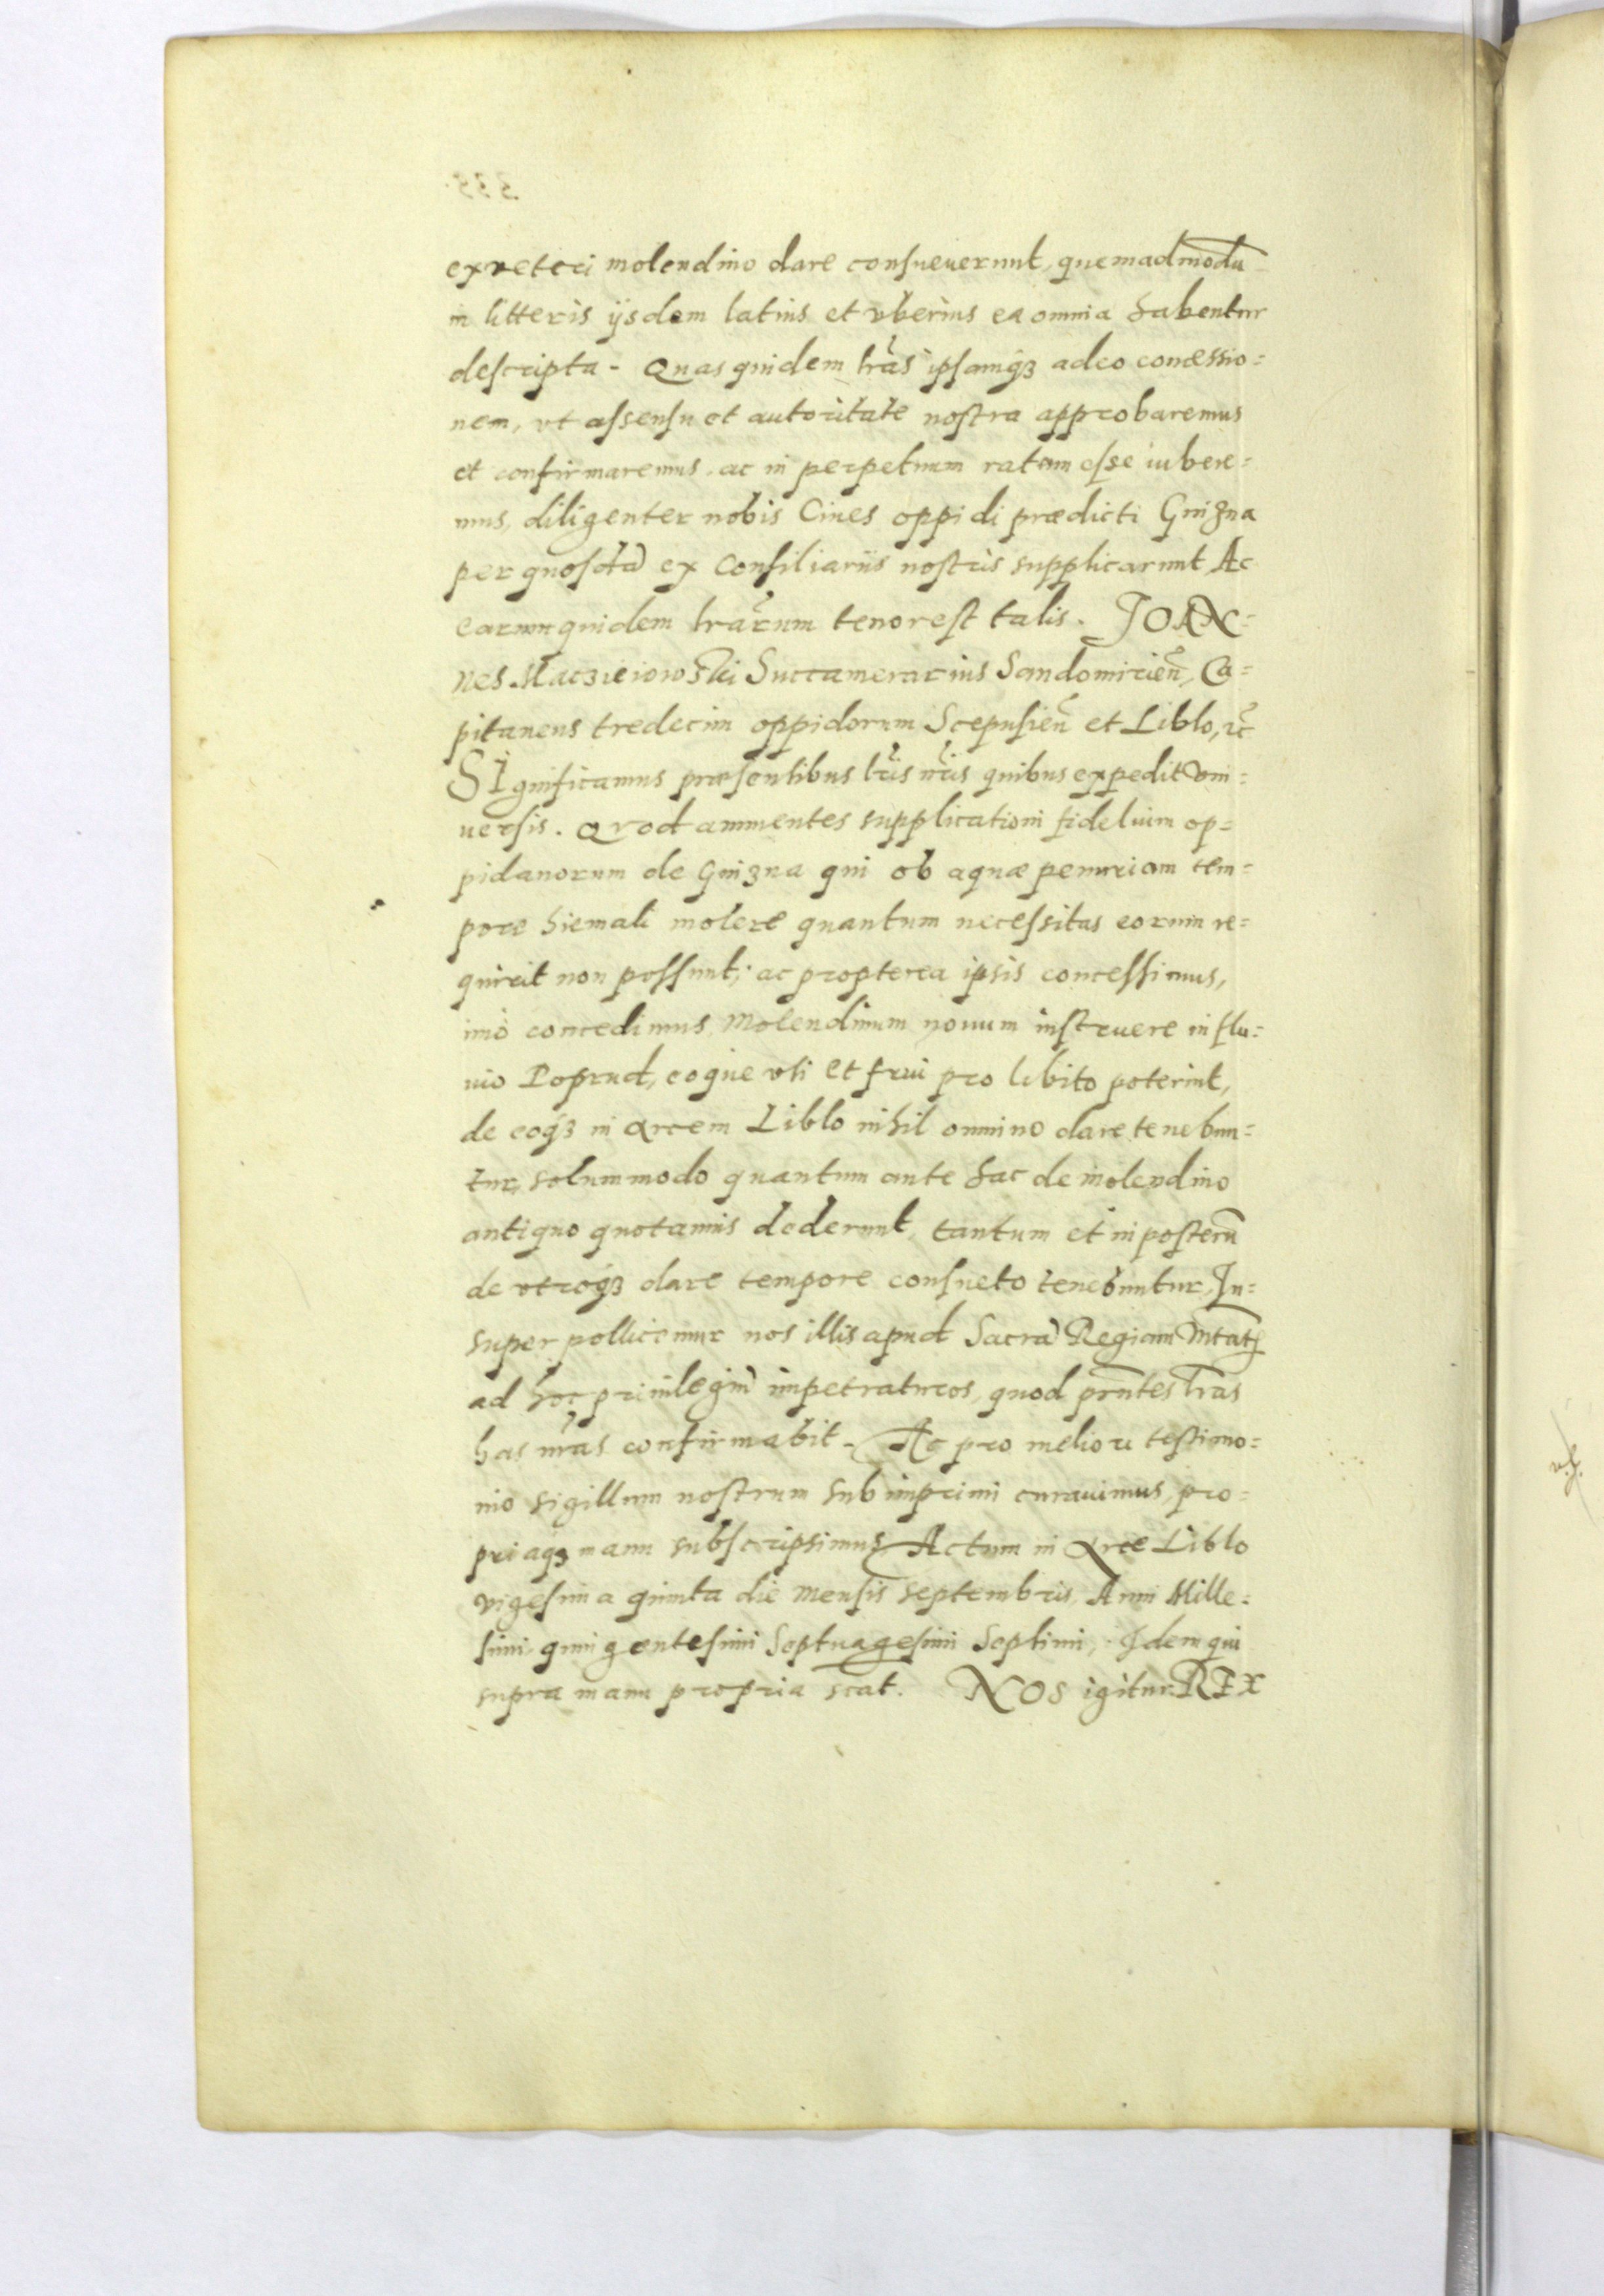 ex veteri molendino dare consueuerunt, quemadmodũ
in litteris ijsdem latius et vberius ea omnia habentur
descripta. Quas quidem lr̃as ipsamq̃ʒ adeo concessio=
nem, vt assensu et autoritate nostra approbaremus
et confirmaremus, ac in perpetuum ratam esse iubere=
mus, diligenter nobis Ciues oppidi prædicti Gnizna
per quosdã ex Consiliariis nostris supplicarunt, Ac
earum quidem lrãrum tenor est talis. JOAN=
nes Maczieiowski Succamerarius Sandomirieñ, Ca=
pitaneus tredecim oppidorum Scepusieñ et Liblo, ꝛc̃
SIgnificamus præsentibus lr̃is nr̃is quibus expedit vni=
uersis. Quod annuentes supplicationi fidelium op=
pidanorum de Gnizna qui ob aquæ penuriam tem=
pore hiemali molere quantum necessitas eorum re=
quirit non possunt; ac propterea ipsis concessimus,
imò concedimus Molendinum nouum instruere in flu=
uio Poprud, eoque vti et frui pro libito poterint,
de eoq́ʒ in Arcem Liblo nihil omnino dare tenebun=
tur, solummodo quantum ante hac de molendino
antiquo quotannis dederunt, tantum et in posterũ
de vtroq́ʒ dare tempore consueto tenebuntur, In=
super pollicemur nos illis apud Sacrã Regiam Mtatẽ
ad hoc priuilegiũ impetraturos, quod pr̃ntes lr̃as
has nr̃as confirmabit. Ac pro meliori testimo=
nio sigillum nostrum subimprimi curauimus, pro=
priaqʒ manu subscripsimus, Actum in Arce Liblo
vigesima quinta die Mensis Septembris, Anni Mille=
simi quingentesimi Septuagesimi Septimi, Idem qui
supra manu propria scat. NOS igitur REX